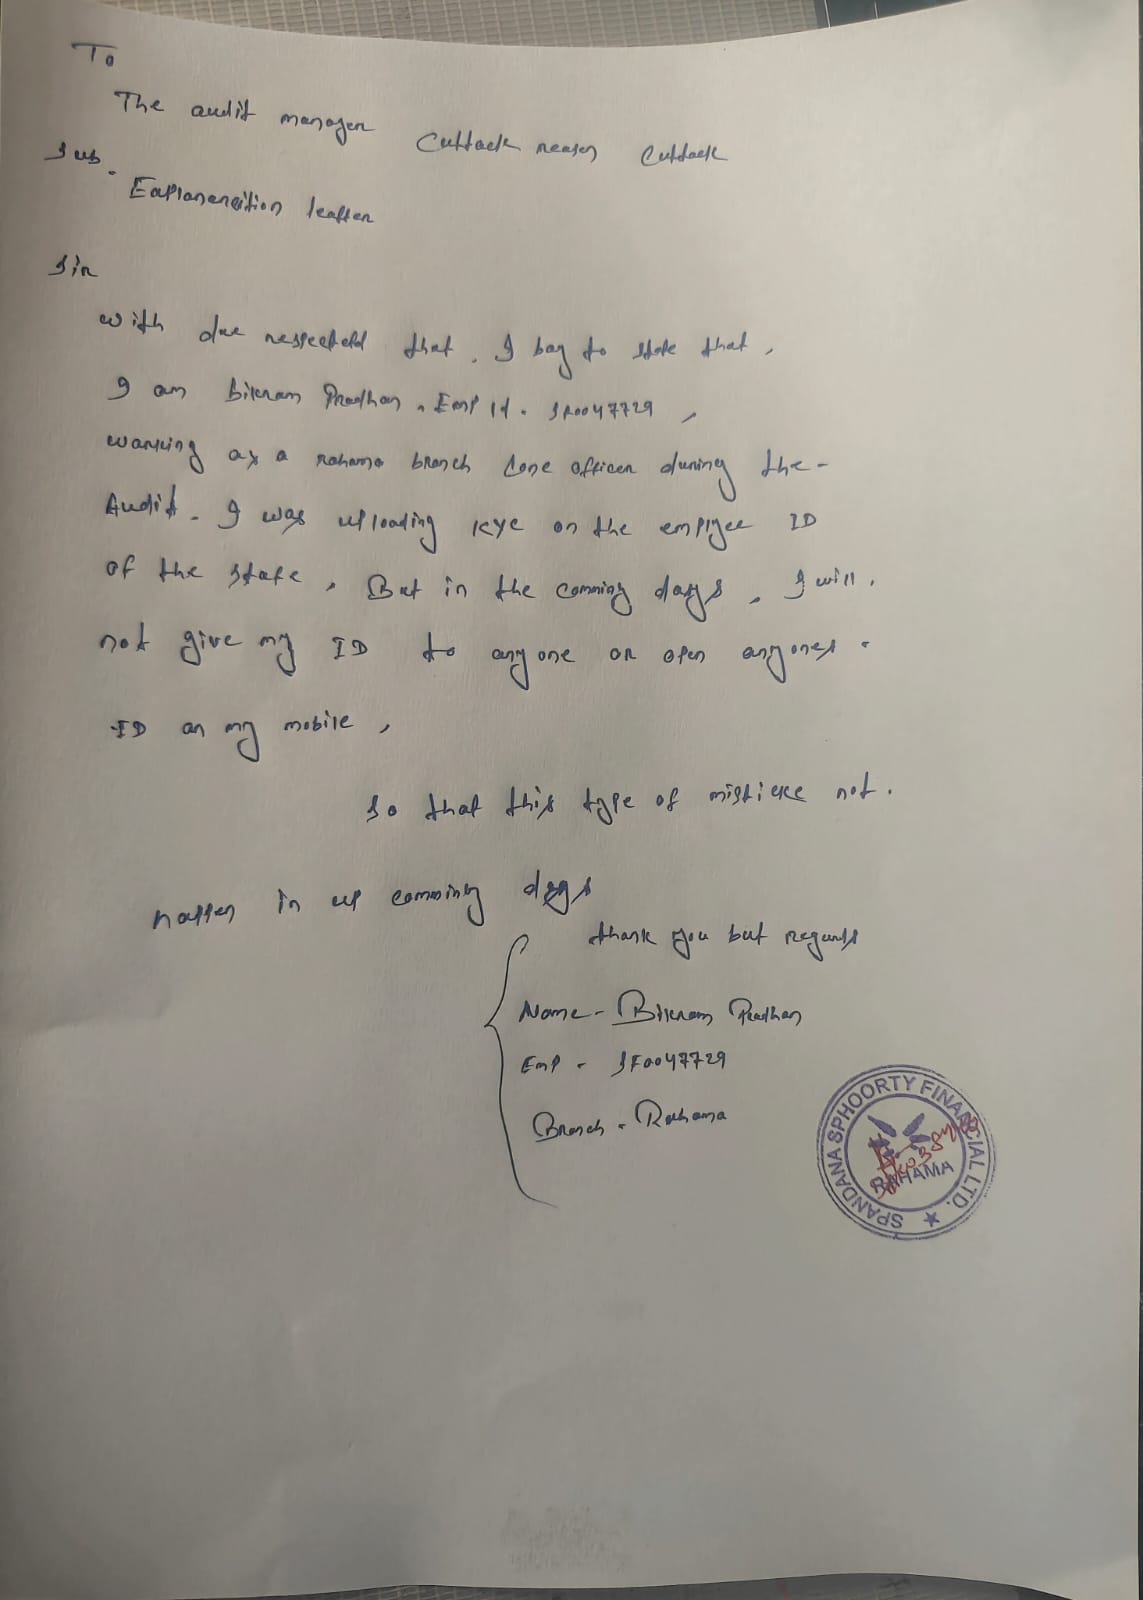 To
The audit manager Cuttack reason Cuttack
Sub.
Explanenation leatter
Sir
with due respected that. I bag to state that,
I am Bikram Pradhan. Emp Id. SF0047729,
warking as a rahama branch Lone officer during the-
Audit. I was uploading KYC on the emplyee ID
of the stafe. But in the comming days, I will.
not give my ID to any one or open anyones.
ID on my mobile,
so that this type of misticke not.
happen in up comming days
thank you but regards
Name - Bikram Pradhan
Emp - SF0047729
Branch - Rahama
SPANDANA SPHOORTY FINANCIAL LTD.
RAHAMA